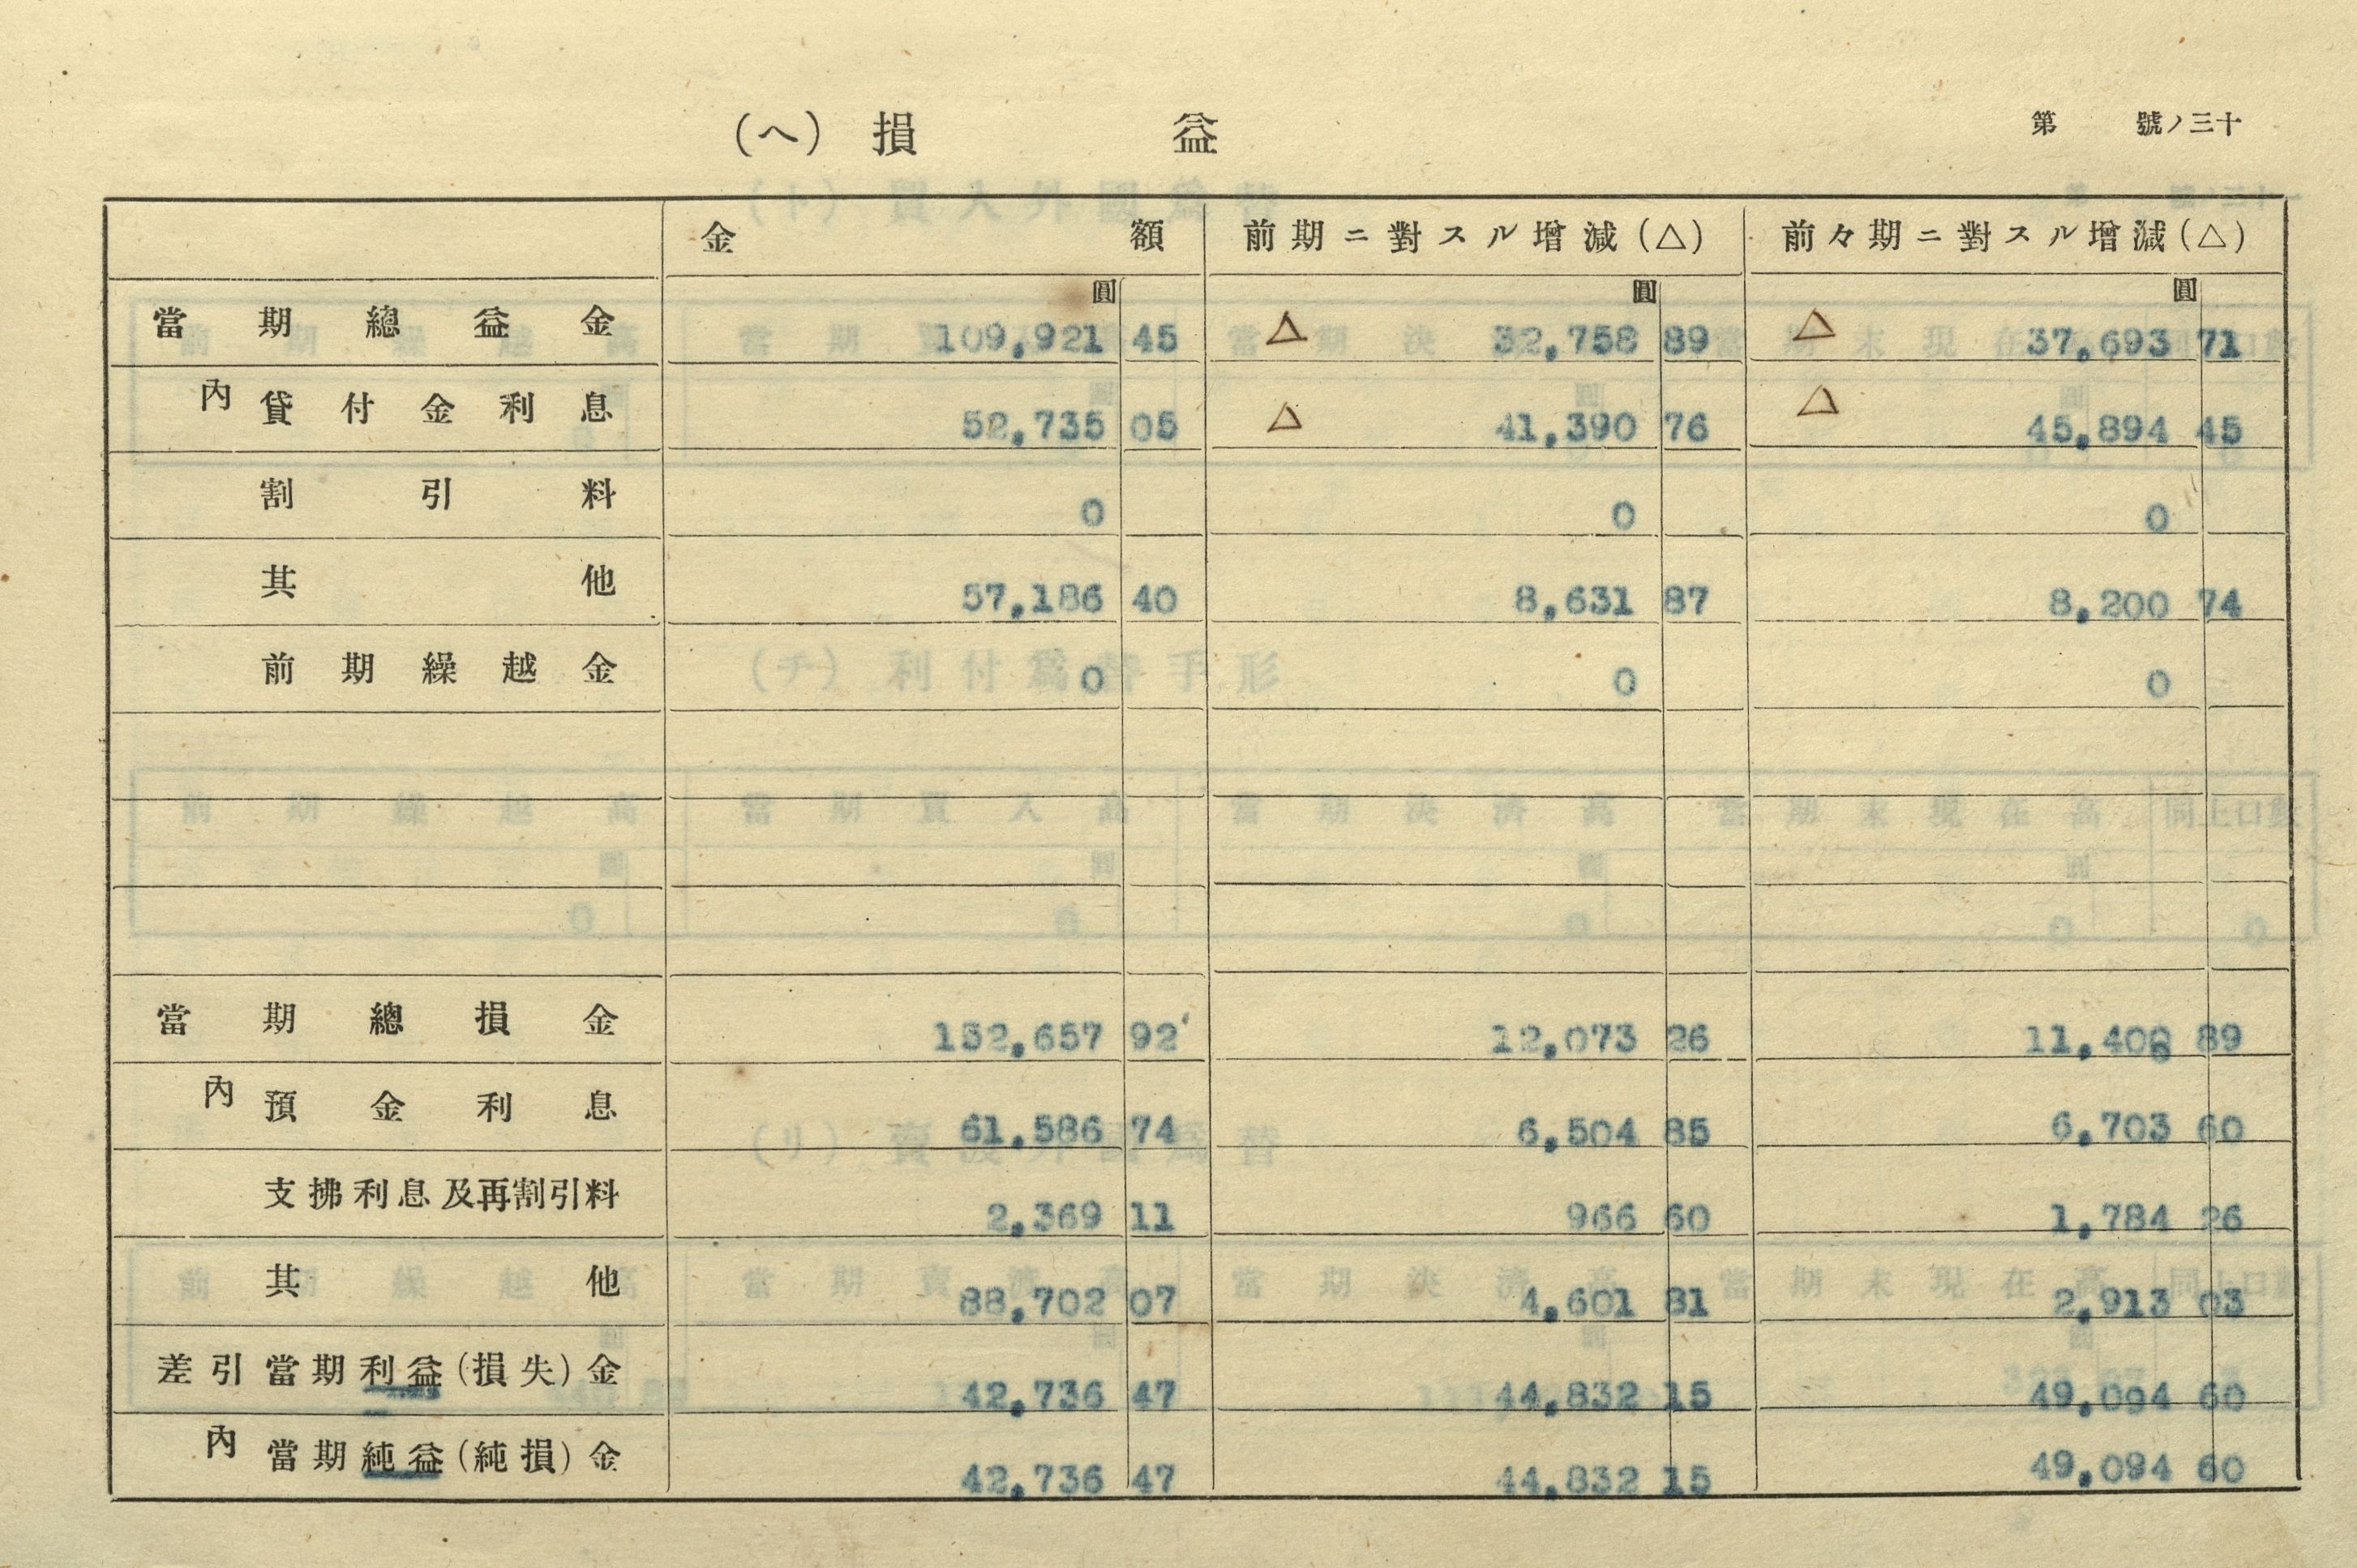 (ヘ) 損益
第 號ノ三十
金額 前期ニ對スル增減(△) 前々期ニ對スル增減(△)
圓 圓 圓
當期總益金 109,921 45 △ 32,758 89 △ 37,693 71
內 貸付金利息 52,735 05 △ 41,390 76 △ 45,894 45
割引料 0 0 0
其他 57,186 40 8,631 87 8,200 74
前期繰越金 0 0 0
當期總損金 152,657 92 12,073 26 11,400 89
內 預金利息 61,586 74 6,504 85 6,703 60
支拂利息及再割引料 2,369 11 966 60 1,784 26
其他 88,702 07 4,601 81 2,913 03
差引當期利益(損失)金 42,736 47 44,832 15 49,094 60
內 當期純益(純損)金 42,736 47 44,832 15 49,094 60